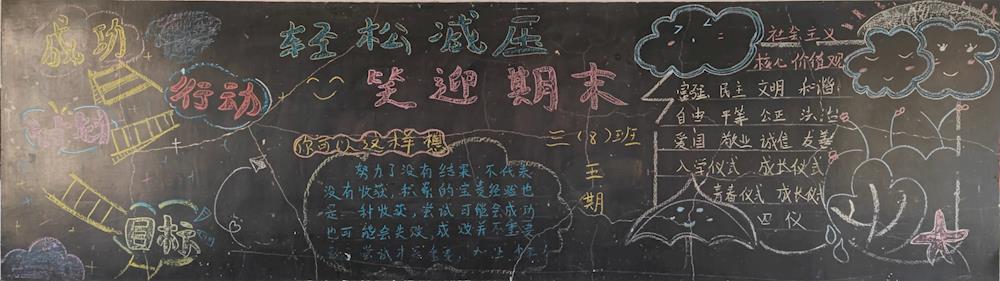 成功
计划
行动
目标
轻松减压
笑迎期末
三(8)班
五期
你可以这样想
努力了没有结果,不代表
没有收获,积累的宝贵经验也
是一种收获,尝试可能会成功
也可能会失败,成败并不重要
尝试才最重要,
社会主义
核心价值观
富强 民主 文明 和谐
自由 平等 公正 法治
爱国 敬业 诚信 友善
入学仪式 成长仪式
青春仪式 成长仪式
四仪